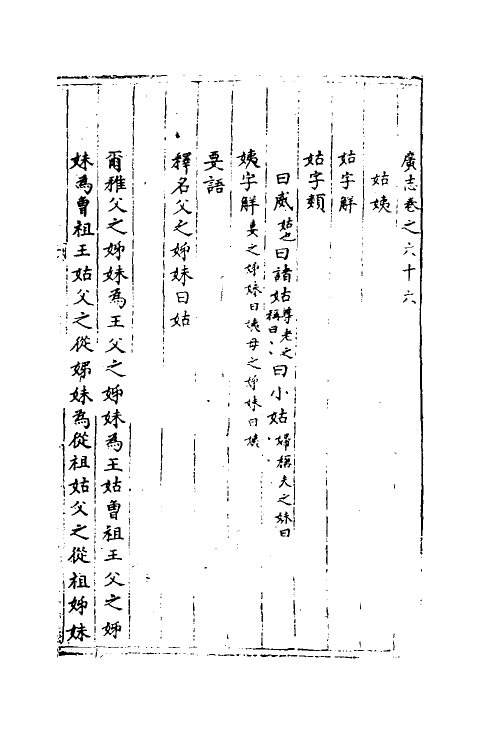 廣志卷之六十六
姑姨
姑字解
姑字類
曰威姑也曰諸姑尊老之稱曰〻曰小姑婦稱夫之妹曰〻
姨字解妻之姊妹曰姨母之姊妹曰姨
要語
釋名父之姊妹曰姑
爾雅父之姊妹為王父之姊妹為王姑曾祖王父之姊
妹為曾祖王姑父之從姊妹為從祖姑父之從祖姊妹